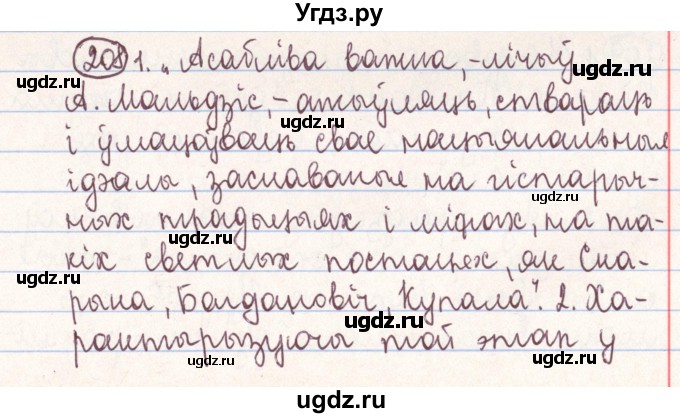 Угдз.ру
208 1. „Асабліва важна, - лічыў
А. Мальдзіс, - ажыўляць, ствараць
і ўмацоўваць свае нацыянальныя
ідэалы, заснаваныя на гістарыч-
ных традыцыях і міфах, на та-
кіх светлых постацях, як Ска-
рына, Багдановіч, Купала". 2. Ха-
рактарызуючы той этап у
ugdz.ru
ugdz.ru
ugdz.ru
ugdz.ru
ugdz.ru
ugdz.ru
ugdz.ru
ugdz.ru
ugdz.ru
ugdz.ru
ugdz.ru
ugdz.ru
ugdz.ru
ugdz.ru